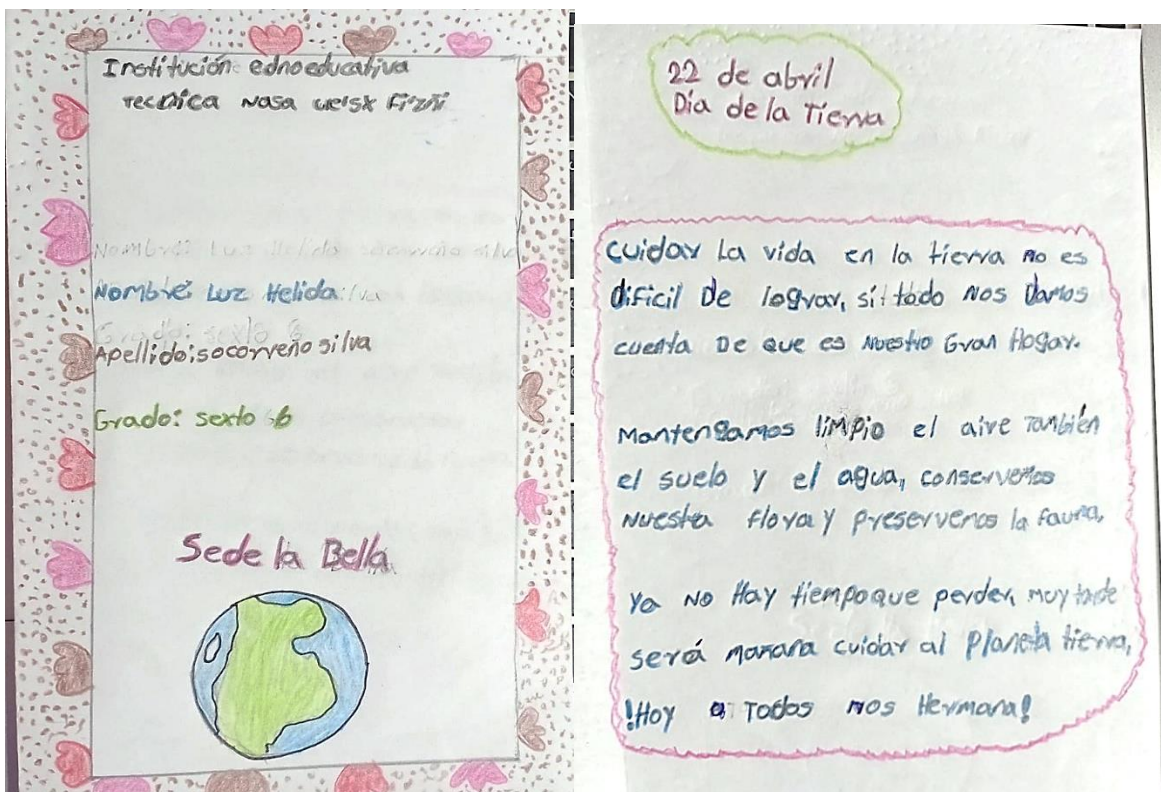 Institución ednoeducativa
Tecnica Nasa
Nombre: Luz Helida
Apellido: socorreño silva
Grado: sexto 6
Sede la Bella
22 de abril
Día de la Tierra
cuidar La vida en la tierra no es
dificil De lograr, si todo Nos Damos
cuenta De que es Nuestro Gran Hogar.
Mantengamos limpio el aire También
el suelo y el agua, conservemos
Nuestra flora y preservemos la fauna,
Ya No Hay tiempo que perder, muy tarde
será manana cuidar al planeta tierra,
!Hoy a Todos nos Hermana!